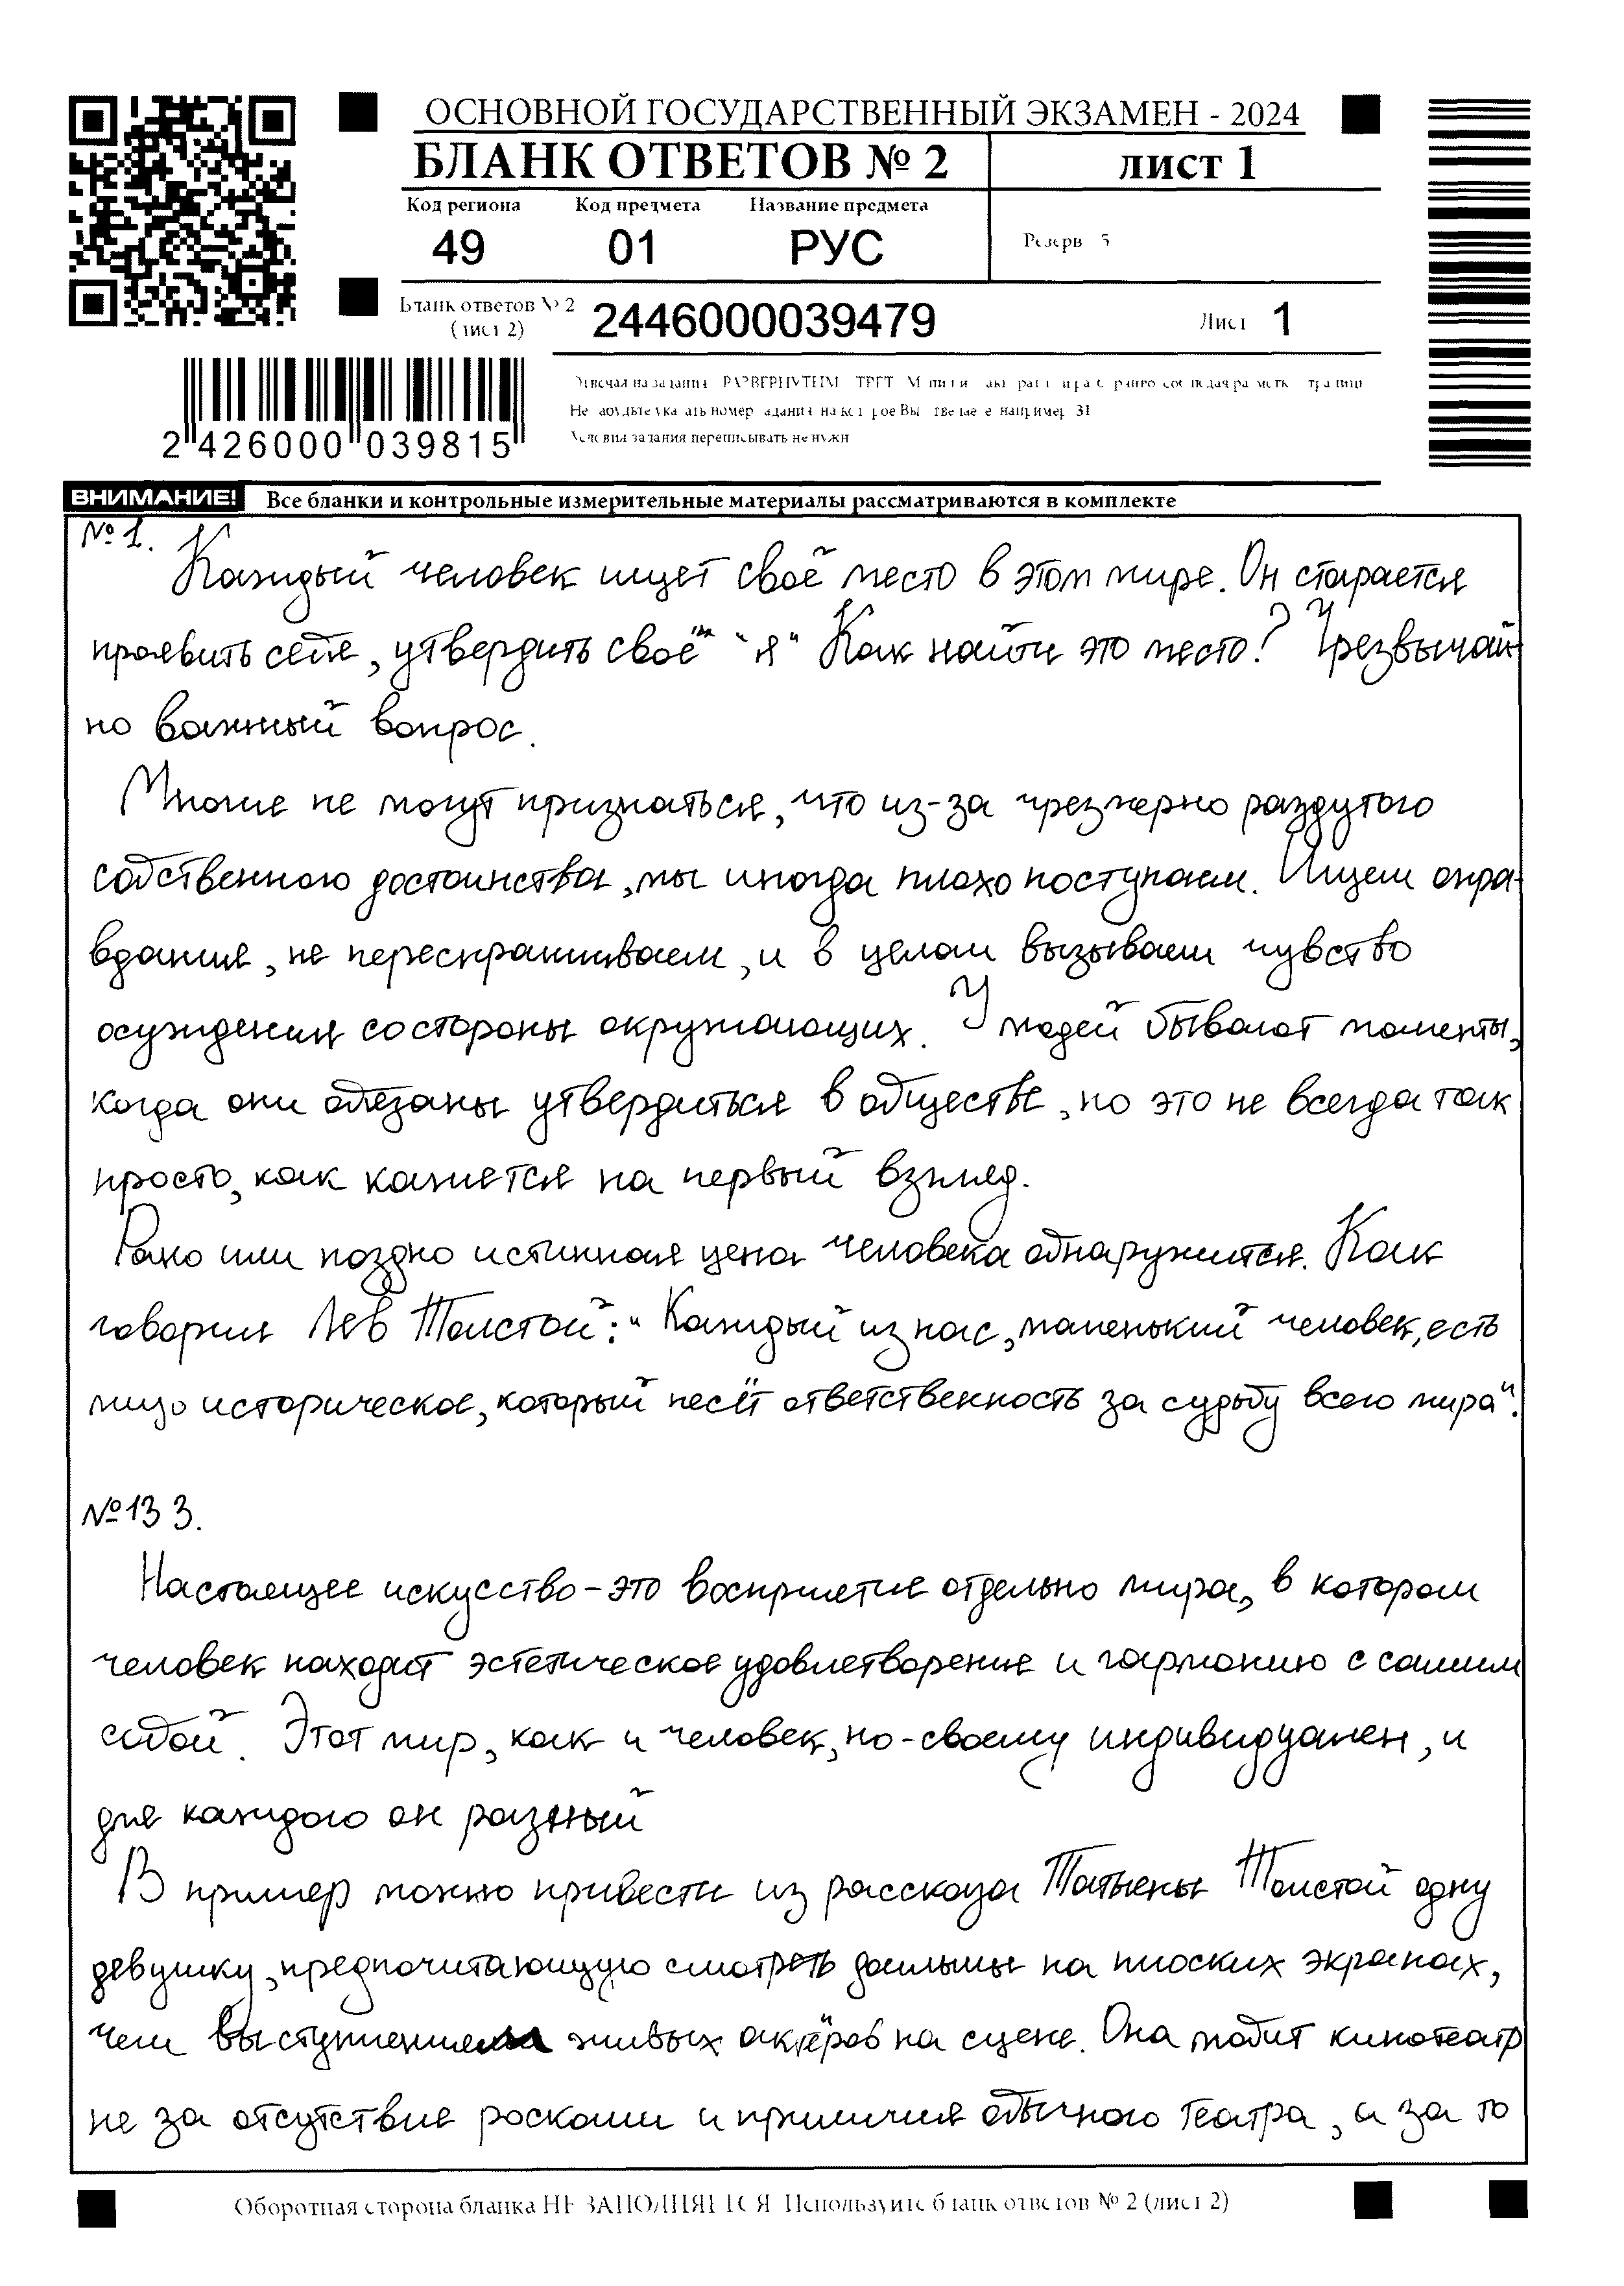 ОСНОВНОЙ ГОСУДАРСТВЕННЫЙ ЭКЗАМЕН - 2024
БЛАНК ОТВЕТОВ № 2 ЛИСТ 1
Код региона Код предмета Название предмета
49 01 РУС Резерв 5
Бланк ответов № 2
(лист 2) 2446000039479 Лист 1
2 426000 039815
Условия задания переписывать не нужн
ВНИМАНИЕ! Все бланки и контрольные измерительные материалы рассматриваются в комплекте
№1.
Каждый человек ищет своё место в этом мире. Он старается
проявить себя, утвердить своё "я" Как найти это место? Чрезвычай
но важный вопрос.
Многие не могут признаться, что из-за чрезмерно раздутого
собственного достоинства, мы иногда плохо поступаем. Ищем опра-
вдания, не переспрашиваем, и в целом вызываем чувство
осуждения со стороны окружающих. У людей бывают моменты,
когда они обязаны утвердиться в обществе, но это не всегда так
просто, как кажется на первый взгляд.
Рано или поздно истинная цена человека обнаружится. Как
говорил Лев Толстой: "Каждый из нас, маленький человек, есть
лицо историческое, который несёт ответственность за судьбу всего мира".
№13 3.
Настоящее искусство - это восприятие отдельно мира, в котором
человек находит эстетическое удовлетворение и гармонию с самим
собой. Этот мир, как и человек, по-своему индивидуален, и
для каждого он разный
В пример можно привести из рассказа Татьяны Толстой одну
девушку, предпочитающую смотреть фильмы на плоских экранах,
чем выступления живых актёров на сцене. Она любит кинотеатр
не за отсутствие роскоши и приличия обычного театра, а за то
Оборотная сторона бланка НЕ ЗАПОЛНЯЕТСЯ. Используйте бланк ответов № 2 (лист 2)